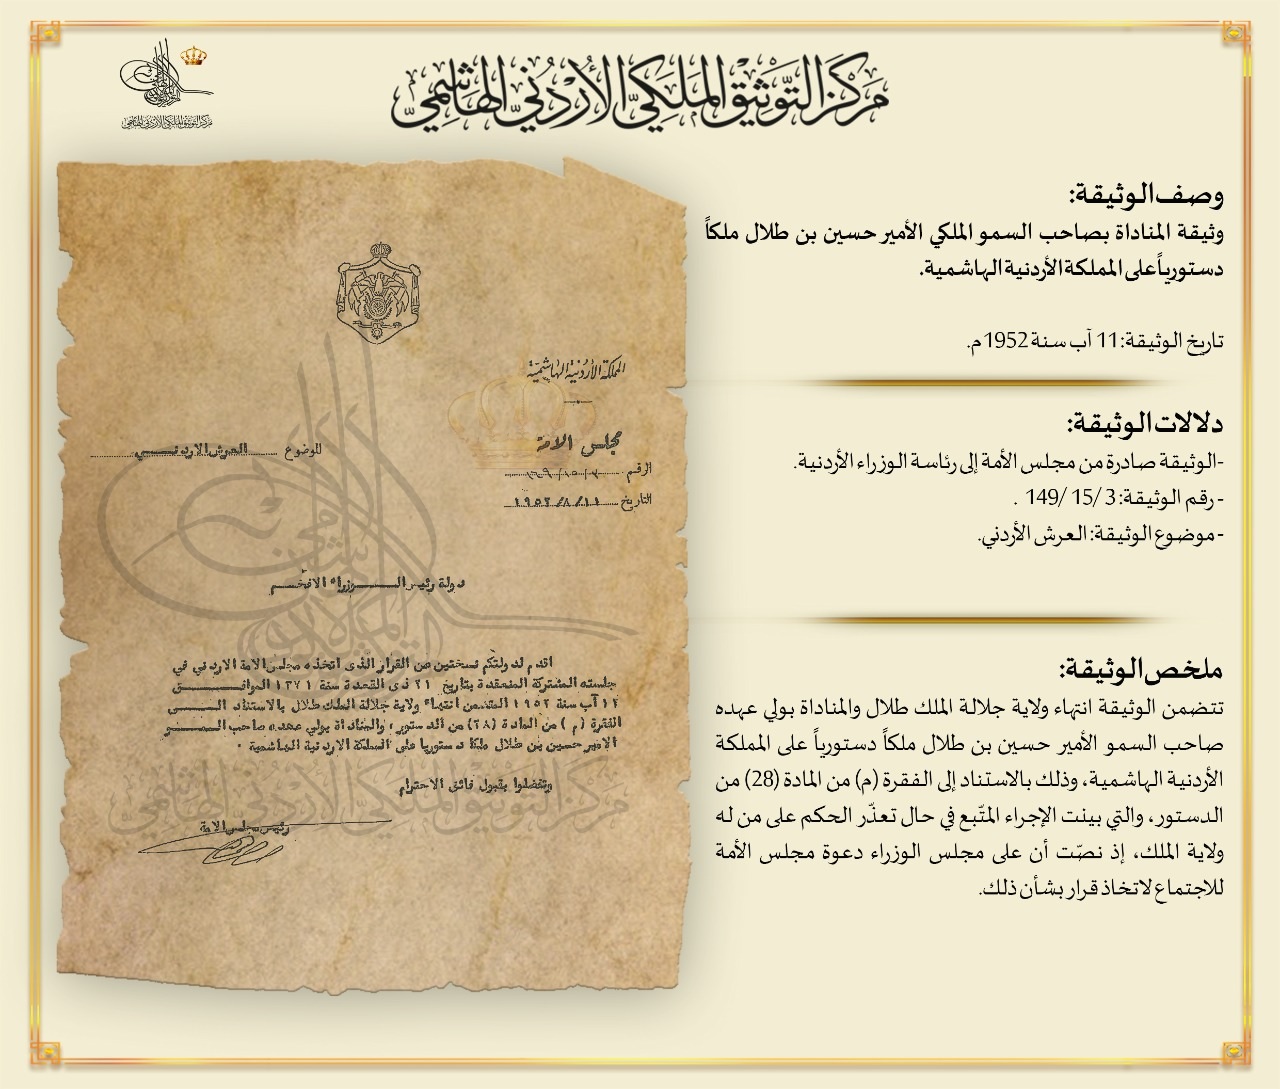 مركز التوثيق الملكي الأردني الهاشمي
مركز التوثيق الملكي الأردني الهاشمي
وصف الوثيقة:
وثيقة المناداة بصاحب السمو الملكي الأمير حسين بن طلال ملكاً
دستورياً على المملكة الأردنية الهاشمية.
تاريخ الوثيقة: 11 آب سنة 1952م.
دلالات الوثيقة:
-الوثيقة صادرة من مجلس الأمة إلى رئاسة الوزراء الأردنية.
- رقم الوثيقة: 3/ 15/ 149 .
- موضوع الوثيقة: العرش الأردني.
ملخص الوثيقة:
تتضمن الوثيقة انتهاء ولاية جلالة الملك طلال والمناداة بولي عهده
صاحب السمو الأمير حسين بن طلال ملكاً دستورياً على المملكة
الأردنية الهاشمية، وذلك بالاستناد إلى الفقرة (م) من المادة (28) من
الدستور، والتي بينت الإجراء المتّبع في حال تعذّر الحكم على من له
ولاية الملك، إذ نصّت أن على مجلس الوزراء دعوة مجلس الأمة
للاجتماع لاتخاذ قرار بشأن ذلك.
المملكة الأردنية الهاشمية
مجلس الامة
الموضوع العرش الاردنـــي
الرقم
التاريخ ١٩٥٢/٨/١١
دولة رئيس الـــوزراء الافخـم
اقدم لدولتكم نسختين من القرار الذى اتخذه مجلس الامة الاردني في
جلسته المشتركة المنعقدة بتاريخ ٢١ ذى القعدة سنة ١٣٧١ الموافـــق
١١ آب سنة ١٩٥٢ المتضمن انتهاء ولاية جلالة الملك طلال بالاستناد الـــى
الفقرة (م) من المادة (٢٨) من الدستور، والمناداة بولي عهده صاحب السمـــو
الامير حسين بن طلال ملكا دستوريا على المملكة الاردنية الهاشمية .
وتفضلوا بقبول فائق الاحترام
رئيس مجلس الامة
مركز التوثيق الملكي الأردني الهاشمي